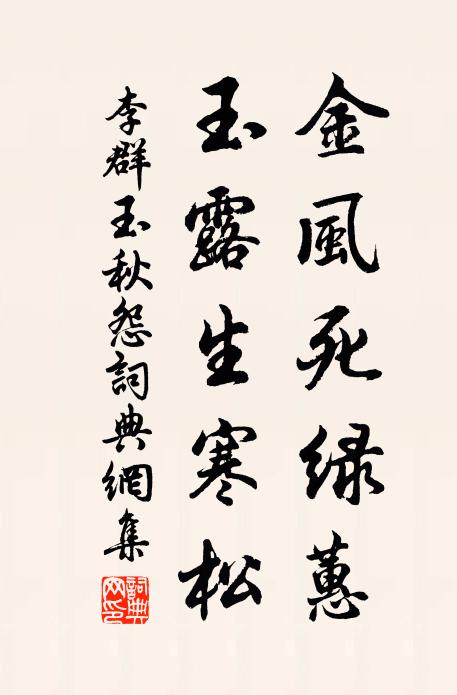 金風死绿蕙
玉露生寒松
李群玉秋怨詞典網集
詞典网印